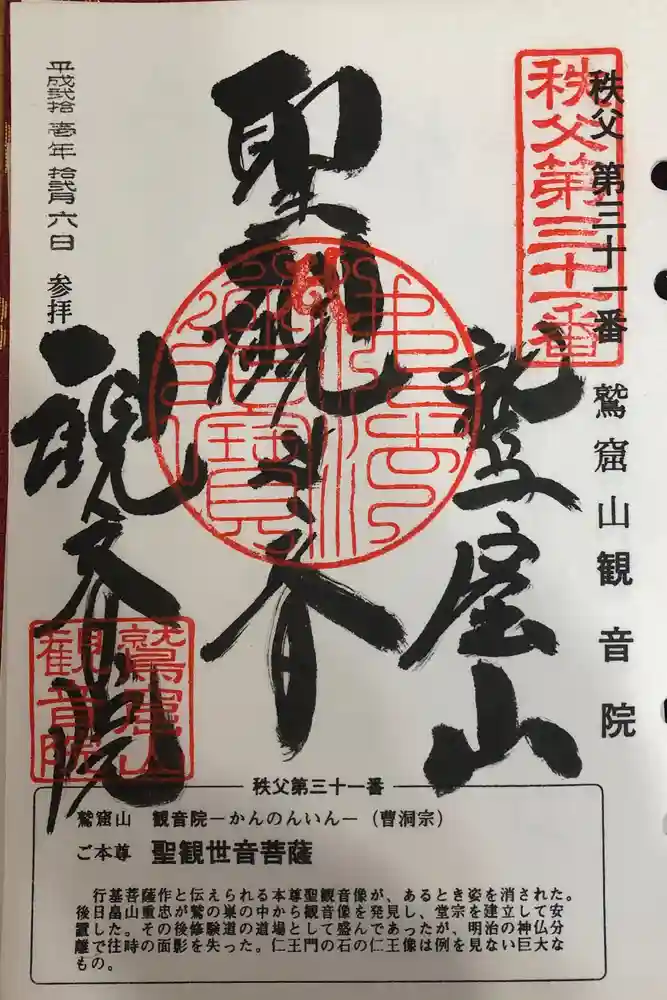 秩父 第三十一番 鷲窟山観音院
秩父第三十一番
鷲窟山
聖観世音
観音院
平成弐拾壱年 拾弐月 六日 参拝
鷲窟山
観音院
秩父第三十一番
鷲窟山 観音院―かんのんいん―（曹洞宗）
ご本尊 聖観世音菩薩
行基菩薩作と伝えられる本尊聖観音像が、あるとき姿を消された。
後日畠山重忠が鷲の巣の中から観音像を発見し、堂宗を建立して安
置した。その後修験道の道場として盛んであったが、明治の神仏分
離で往時の面影を失った。仁王門の石の仁王像は例を見ない巨大な
もの。